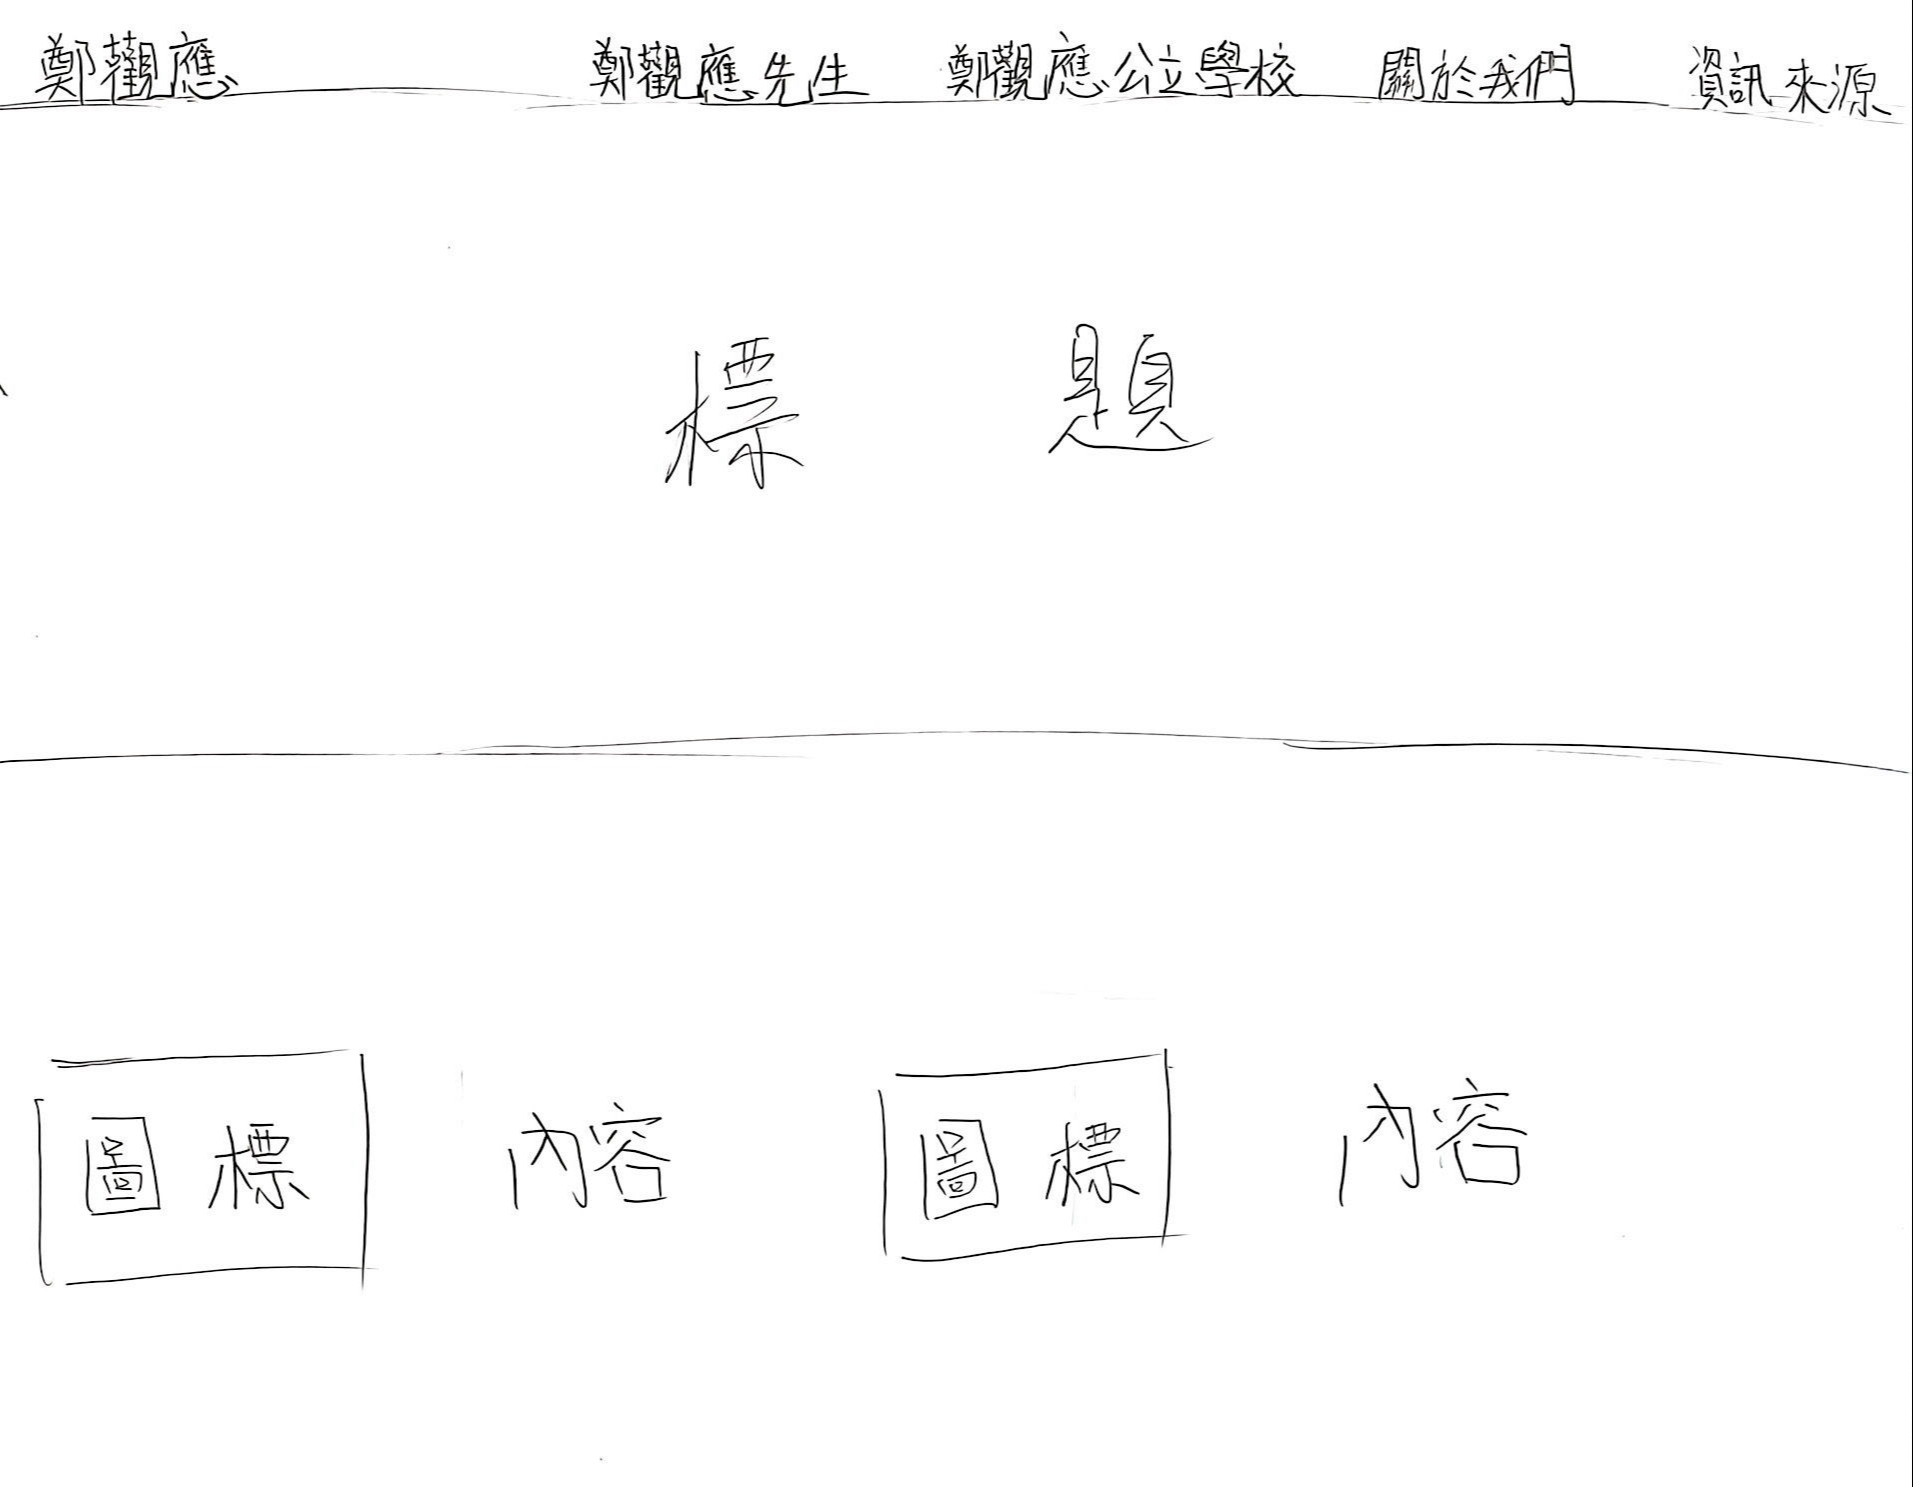 鄭觀應 鄭觀應先生 鄭觀應公立學校 關於我們 資訊來源
標題
圖標 內容 圖標 內容